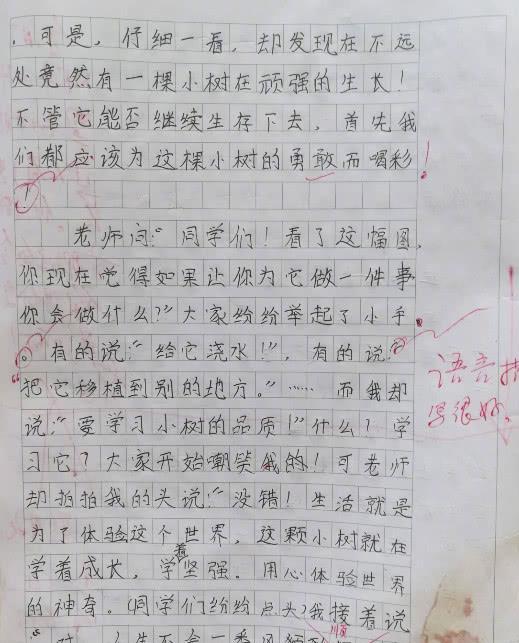 ．可是，仔细一看，却发现在不远
处竟然有一棵小树在顽强的生长！
不管它能否继续生存下去，首先我
们都应该为这棵小树的勇敢而喝彩！
！
老师问：“同学们！看了这幅图，
你现在觉得如果让你为它做一件事
你会做什么？”大家纷纷举起了小手
。有的说：“给它浇水！”，有的说：
“把它移植到别的地方。”……而我却
说：“要学习小树的品质！”什么？学
习它？大家开始嘲笑我的！可老师
却拍拍我的头说：“没错！生活就是
为了体验这个世界，这颗小树就在
学着成长，学着坚强。用心体验世界
的神奇。（同学们纷纷点头）我接着说
语言描
写很好。